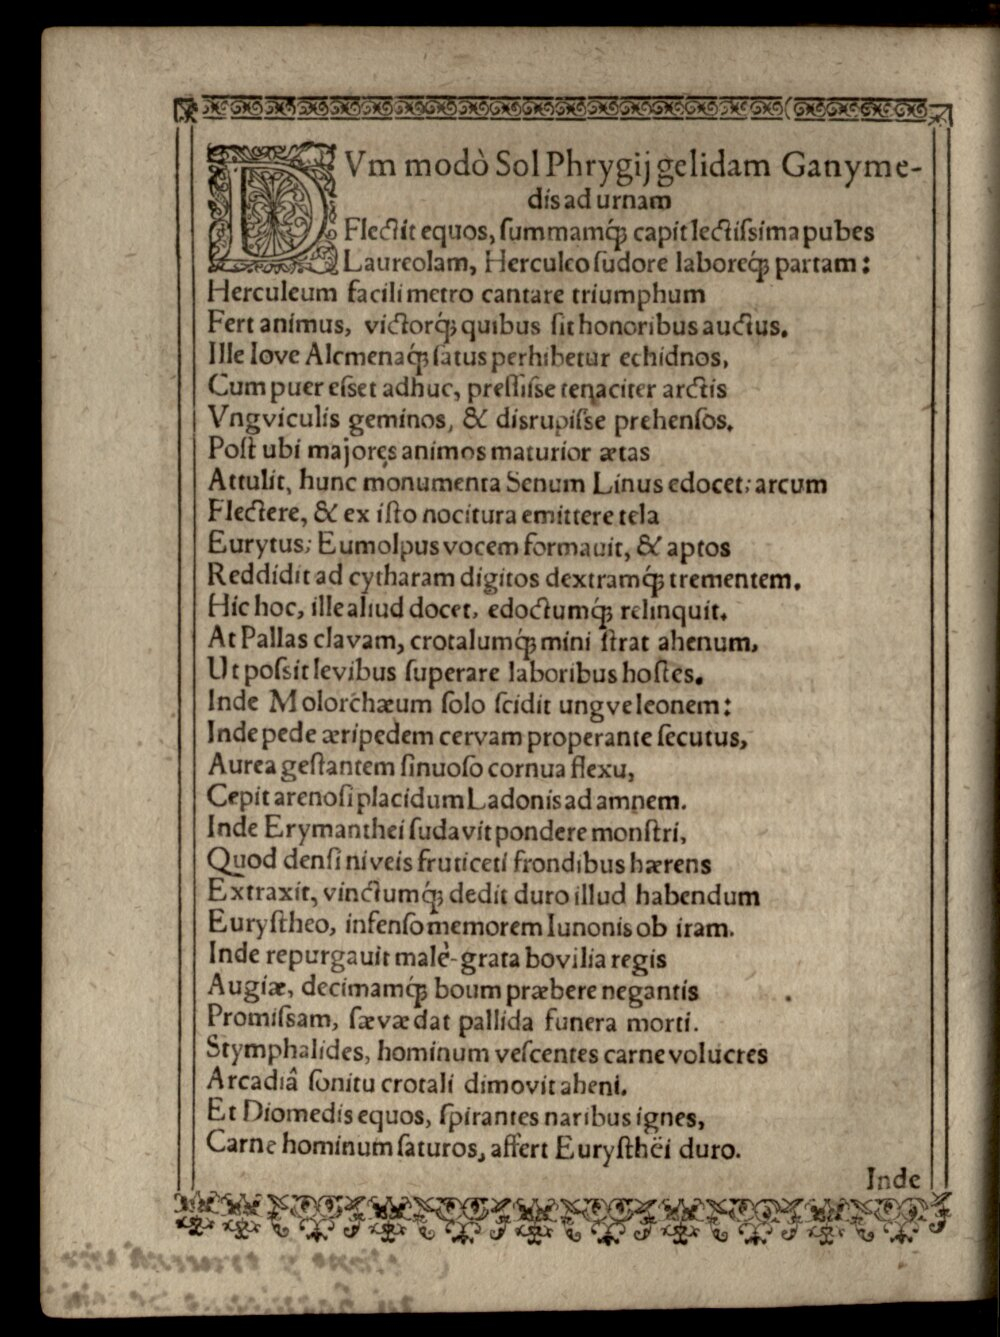 DVm modò Sol Phrygij gelidam Ganyme-
dis ad urnam
Flectit equos, ſummamq́; capit lectiſsima pubes
Laureolam, Herculeo ſudore laboreq́; partam:
Herculeum facili metro cantare triumphum
Fert animus, victorq́; quibus ſit honoribus auctus.
Ille Iove Alcmenaq́; ſatus perhibetur echidnos,
Cum puer eſset adhuc, preſſiſse tenaciter arctis
Vngviculis geminos, & disrupiſse prehenſos.
Poſt ubi majores animos maturior ætas
Attulit, hunc monumenta Senum Linus edocet; arcum
Flectere, & ex iſto nocitura emittere tela
Eurytus; Eumolpus vocem formauit, & aptos
Reddidit ad cytharam digitos dextramq́; trementem.
Hic hoc, ille aliud docet, edoctumq́; relinquit.
At Pallas clavam, crotalumq́; mini ſtrat ahenum,
Ut poſsit levibus ſuperare laboribus hoſtes.
Inde Molorchæum ſolo ſcidit ungve leonem:
Inde pede æripedem cervam properante ſecutus,
Aurea geſtantem ſinuoſo cornua flexu,
Cepit arenoſi placidum Ladonis ad amnem.
Inde Erymanthei ſudavit pondere monſtri,
Quod denſi niveis fruticeti frondibus hærens
Extraxit, vinctumq́; dedit duro illud habendum
Euryſtheo, infenſo memorem Iunonis ob iram.
Inde repurgauit malè-grata bovilia regis
Augiæ, decimamq́; boum præbere negantis
Promiſsam, ſævæ dat pallida funera morti.
Stymphalides, hominum veſcentes carne volucres
Arcadiâ ſonitu crotali dimovit aheni.
Et Diomedis equos, ſpirantes naribus ignes,
Carne hominum ſaturos, affert Euryſthëi duro.
Inde